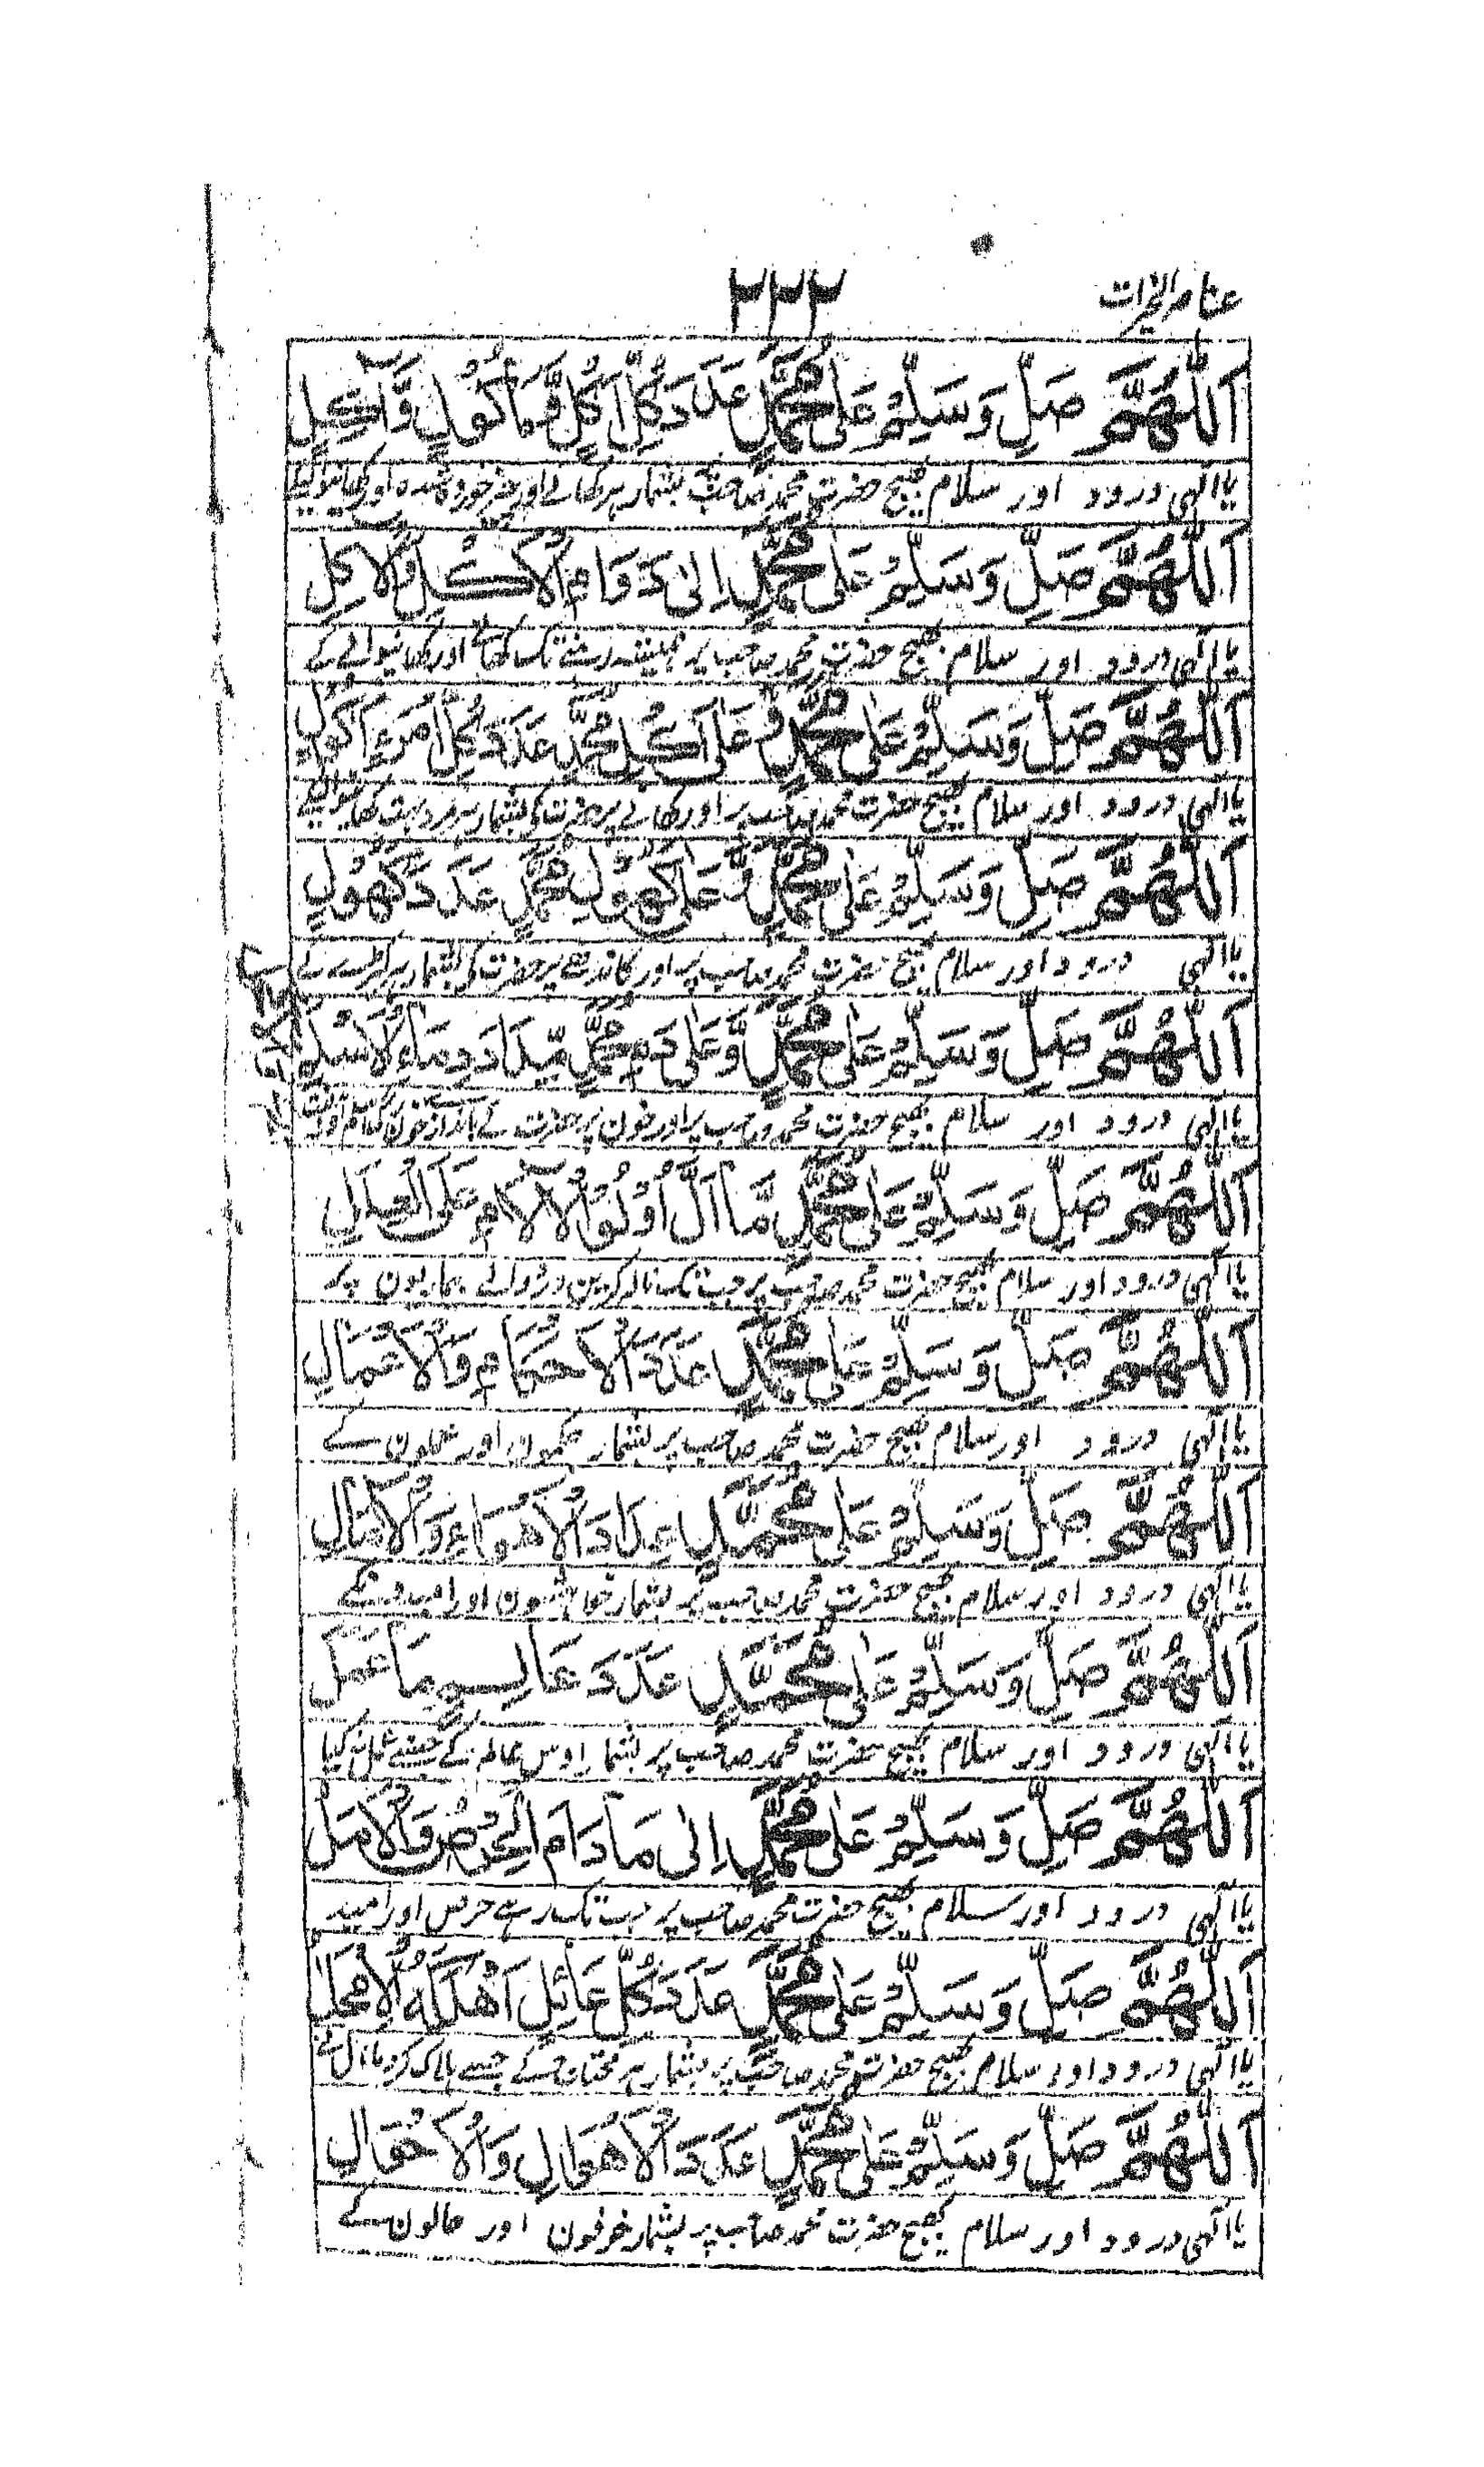 عناصر الخیرات
۲۲۲
اَللّٰهُمَّ صَلِّ وَسَلِّمْ عَلٰى مُحَمَّدٍ عَدَدَ كُلِّ اَكْلٍ وَّمَاْكُوْلٍ وَّاٰكِلٍ
یا الٰہی درود اور سلام بھیج حضرت محمد صاحب پر بشمار ہر کھانے اور چیز خوردہ شدہ اور کھانیوالیکے
اَللّٰهُمَّ صَلِّ وَسَلِّمْ عَلٰى مُحَمَّدٍ اِلٰى دَوَامِ الْاُكُلِ وَالْاٰكِلِ
یا الٰہی درود اور سلام بھیج حضرت محمد صاحب پر ہمیشہ رہنے تک کھانے اور کھانیوالے کے
اَللّٰهُمَّ صَلِّ وَسَلِّمْ عَلٰى مُحَمَّدٍ وَّعَلٰى اَكْلِ مُحَمَّدٍ عَدَدَ كُلِّ امْرَءٍ اَكُوْلٍ
یا الٰہی درود اور سلام بھیج حضرت محمد صاحب پر اور کھانے پر حضرت کی بشمار ہر مرد بہت کھانیوالیکے
اَللّٰهُمَّ صَلِّ وَسَلِّمْ عَلٰى مُحَمَّدٍ وَّعَلٰى كُهُوْلِ مُحَمَّدٍ عَدَدَ كُهُوْلٍ
یا الٰہی درود اور سلام بھیج حضرت محمد صاحب پر اور کاندھے پر حضرت کی بشمار ہر
اَللّٰهُمَّ صَلِّ وَسَلِّمْ عَلٰى مُحَمَّدٍ وَّعَلٰى دَمِ مُحَمَّدٍ مِّدَادَ دِمَاءِ
یا الٰہی درود اور سلام بھیج حضرت محمد صاحب پر اور خون پر حضرت کے باندازخون
اَللّٰهُمَّ صَلِّ وَسَلِّمْ عَلٰى مُحَمَّدٍ مَّا اَلَّ اُوْلُوا الْاٰلَامِ عَلَى الْعِلَلِ
یا الٰہی درود اور سلام بھیج حضرت محمد صاحب پر جب تک نالہ کریں درد والے بیماریون پر
اَللّٰهُمَّ صَلِّ وَسَلِّمْ عَلٰى مُحَمَّدٍ عَدَدَ الْاَحْكَامِ وَالْاَعْمَالِ
یا الٰہی درود اور سلام بھیج حضرت محمد صاحب پر بشمار حکمون اور عملون کے
اَللّٰهُمَّ صَلِّ وَسَلِّمْ عَلٰى مُحَمَّدٍ عِدَادَ الْاَهْوَاءِ وَالْاٰمَالِ
یا الٰہی درود اور سلام بھیج حضرت محمد صاحب پر بشمار خواہشون اور امیدونکے
اَللّٰهُمَّ صَلِّ وَسَلِّمْ عَلٰى مُحَمَّدٍ عَدَدَ عَالِمٍ مَا عَمَلَ
یا الٰہی درود اور سلام بھیج حضرت محمد صاحب پر بشمار اوس عالم کے جسنے عمل نہ کیا
اَللّٰهُمَّ صَلِّ وَسَلِّمْ عَلٰى مُحَمَّدٍ اِلٰى مَادَامَ الْحِرْصُ وَالْاَمَلُ
یا الٰہی درود اور سلام بھیج حضرت محمد صاحب پر جب تک رہے حرص اور امید
اَللّٰهُمَّ صَلِّ وَسَلِّمْ عَلٰى مُحَمَّدٍ عَدَدَ كُلِّ عَائِلٍ اَهْلَكَهُ
یا الٰہی درود اور سلام بھیج حضرت محمد صاحب پر بشمار ہر محتاج کے جسے ہلاک کر دیا
اَللّٰهُمَّ صَلِّ وَسَلِّمْ عَلٰى مُحَمَّدٍ عَدَدَ الْاَهْوَالِ وَالْاَحْوَالِ
یا الٰہی درود اور سلام بھیج حضرت محمد صاحب پر بشمار خوفون اور حالون کے